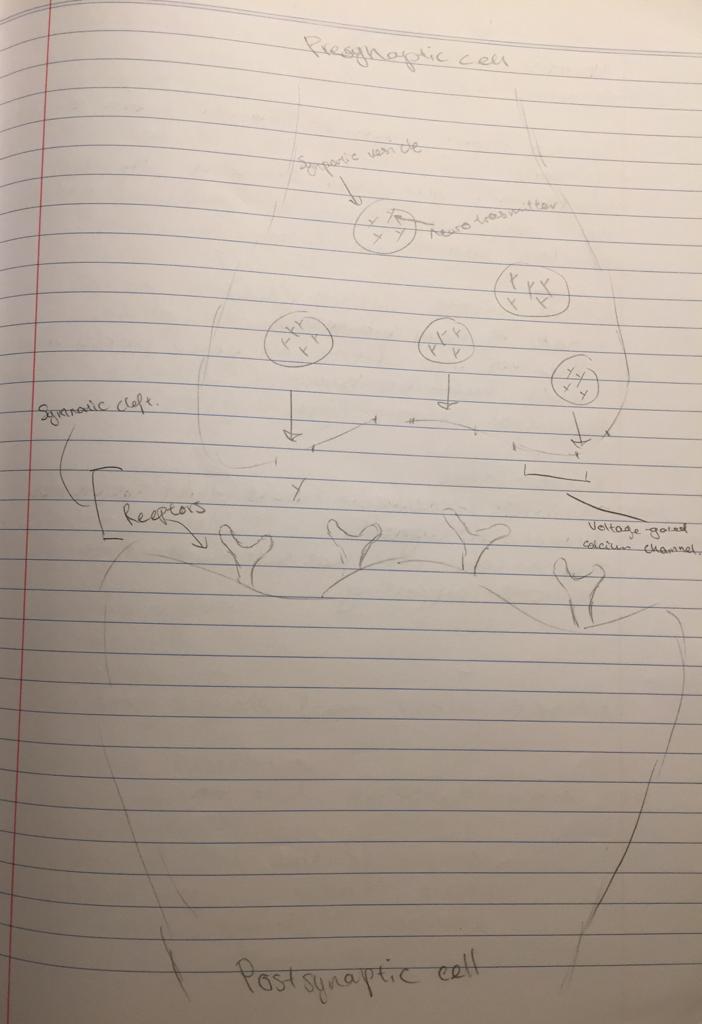 Presynaptic cell
Synparic vesicle
Neurotrasmitter
Synmatic cleft.
Receptors
Voltage-gated
calcium channel.
Postsynaptic cell